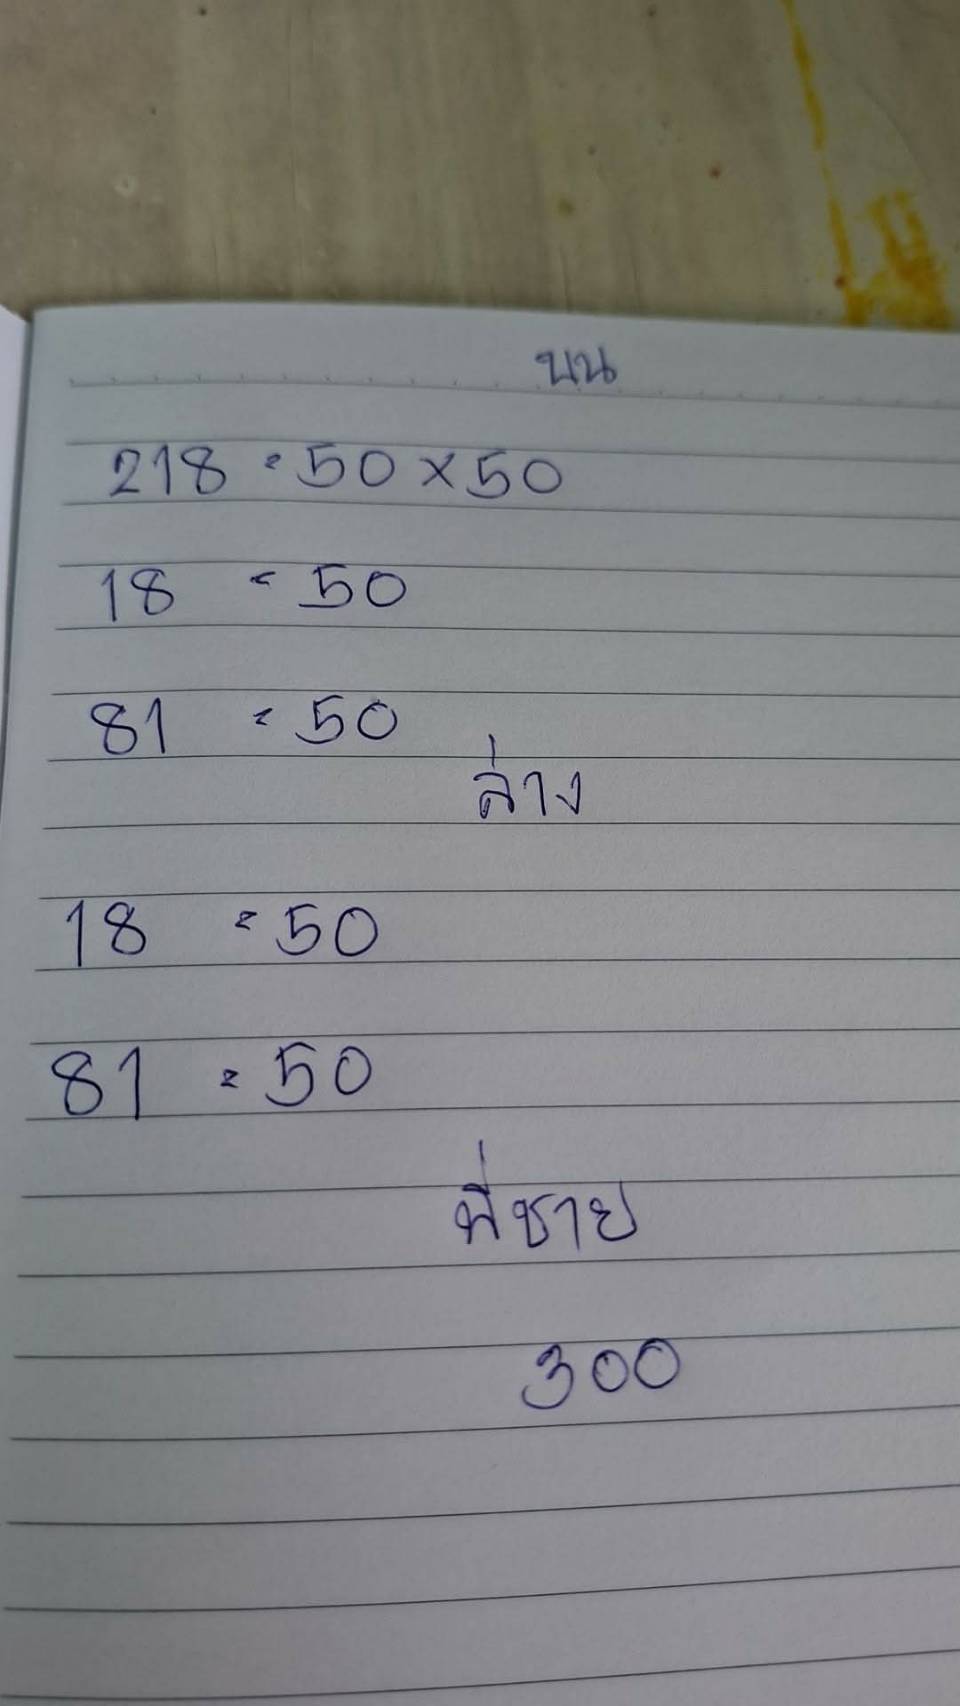 บน
218 = 50 × 50
18 = 50
81 = 50
ล่าง
18 = 50
81 = 50
พี่ชาย
300